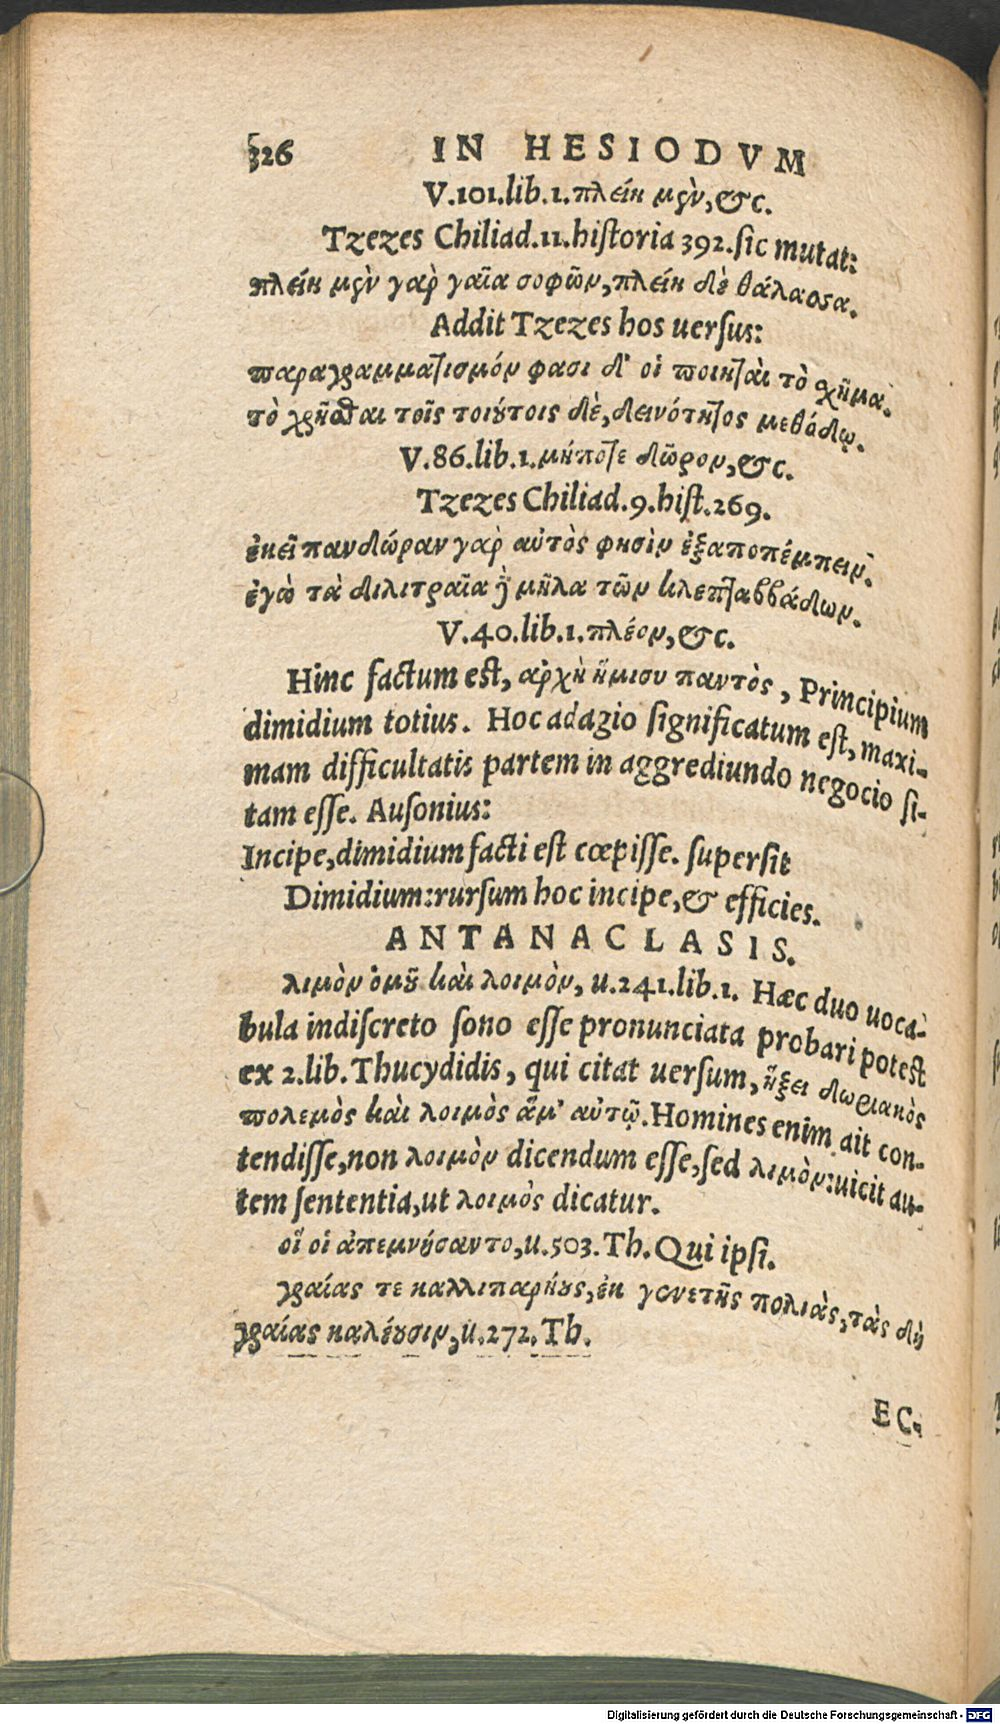 326 IN HESIODVM
V.101.lib.1.πλείη μὲν, &c.
Tzezes Chiliad.11.historia 392.sic mutat:
πλείη μὲν γὰρ γαῖα σοφῶν, πλείη δὲ θάλαοσα.
Addit Tzezes hos uersus:
παραγραμματισμόν φασι δ' οἱ ποιηταὶ τὸ χῆμα.
τὸ χρῆσθαι τοῖς τοιούτοις δὲ, δεινότητος μεθόδῳ.
V.86.lib.1.μήποτε δῶρον, &c.
Tzezes Chiliad.9.hist.269.
ἐκεῖ πανδώραν γὰρ αὐτὸς φησὶν ἐξαποπέμπειν.
ἐγὼ τὰ διλιτραῖα ἢ μῆλα τῶν κλεπταββάδων.
V.40.lib.1.πλέον, &c.
Hinc factum est, ἀρχὴ ἥμισυ παντὸς, Principium
dimidium totius. Hoc adagio significatum est, maxi-
mam difficultatis partem in aggrediundo negocio si-
tam esse. Ausonius:
Incipe, dimidium facti est cœpisse. supersit
Dimidium: rursum hoc incipe, & efficies.
ANTANACLASIS.
λιμὸν ὁμοῦ καὶ λοιμὸν, u.241.lib.1. Hæc duo uoca-
bula indiscreto sono esse pronunciata probari potest
ex 2.lib. Thucydidis, qui citat uersum, ἥξει δωριακὸς
πολεμὸς καὶ λοιμὸς ἅμ' αὐτῷ. Homines enim ait con-
tendisse, non λοιμὸν dicendum esse, sed λιμὸν: uicit au-
tem sententia, ut λοιμὸς dicatur.
οἵ οἱ ἀπεμνήσαντο, u.503.Th. Qui ipsi.
γραίας τε καλλιπαρῄους, ἐκ γενετῆς πολιὰς, τὰς δὴ
γραίας καλέουσιν, u.272.Th.
EC.
Digitalisierung gefördert durch die Deutsche Forschungsgemeinschaft - DFG